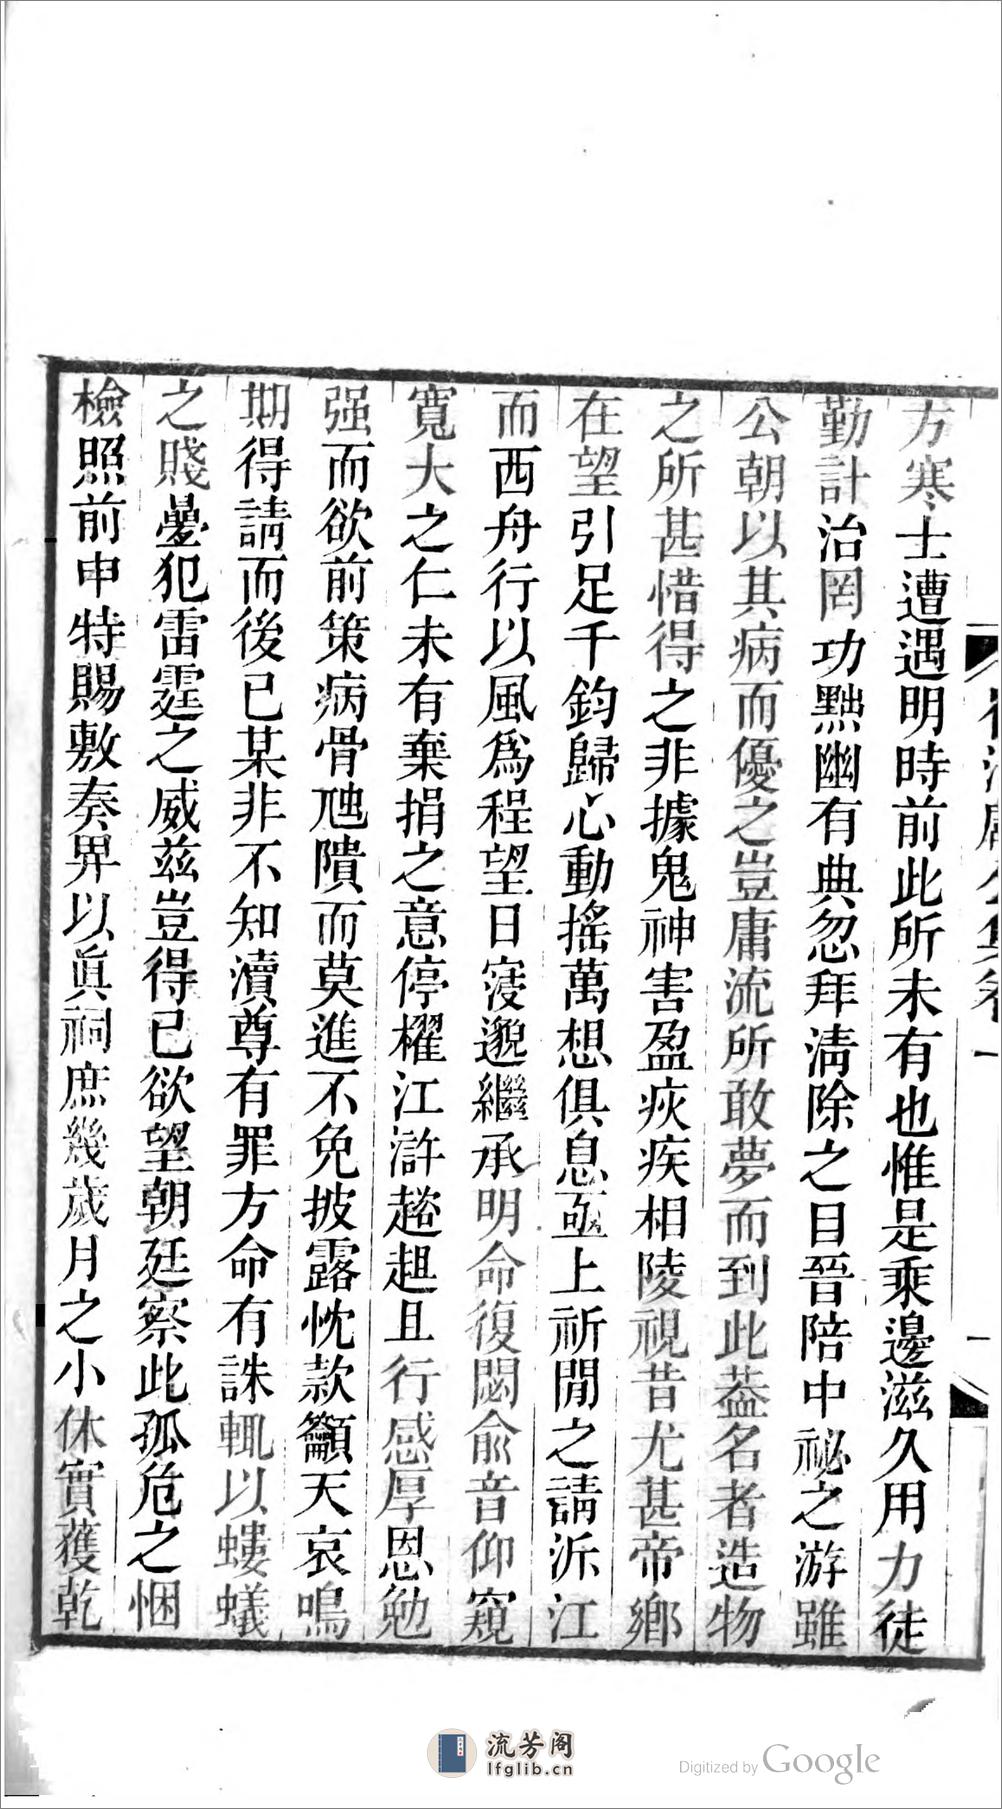 方寒士遭遇明時前此所未有也惟是乘邊滋久用力徒
勤計治罔功黜幽有典忽拜淸除之目晉陪中祕之游雖
公朝以其病而優之豈庸流所敢夢而到此葢名者造物
之所甚惜得之非據鬼神害盈疢疾相陵視昔尤甚帝鄉
在望引足千鈞歸心動搖萬想俱息亟上祈閒之請泝江
而西舟行以風爲程望日寖邈繼承明命復閟兪音仰窺
寬大之仁未有棄捐之意停櫂江滸趑趄且行感厚恩勉
强而欲前策病骨虺隤而莫進不免披露忱款籲天哀鳴
期得請而後已某非不知瀆尊有罪方命有誅輒以螻蟻
之賤曑犯雷霆之威茲豈得已欲望朝廷察此孤危之悃
檢照前申特賜敷奏畀以眞祠庶幾歲月之小休實獲乾
一
流芳阁
lfglib.cn
Digitized by Google